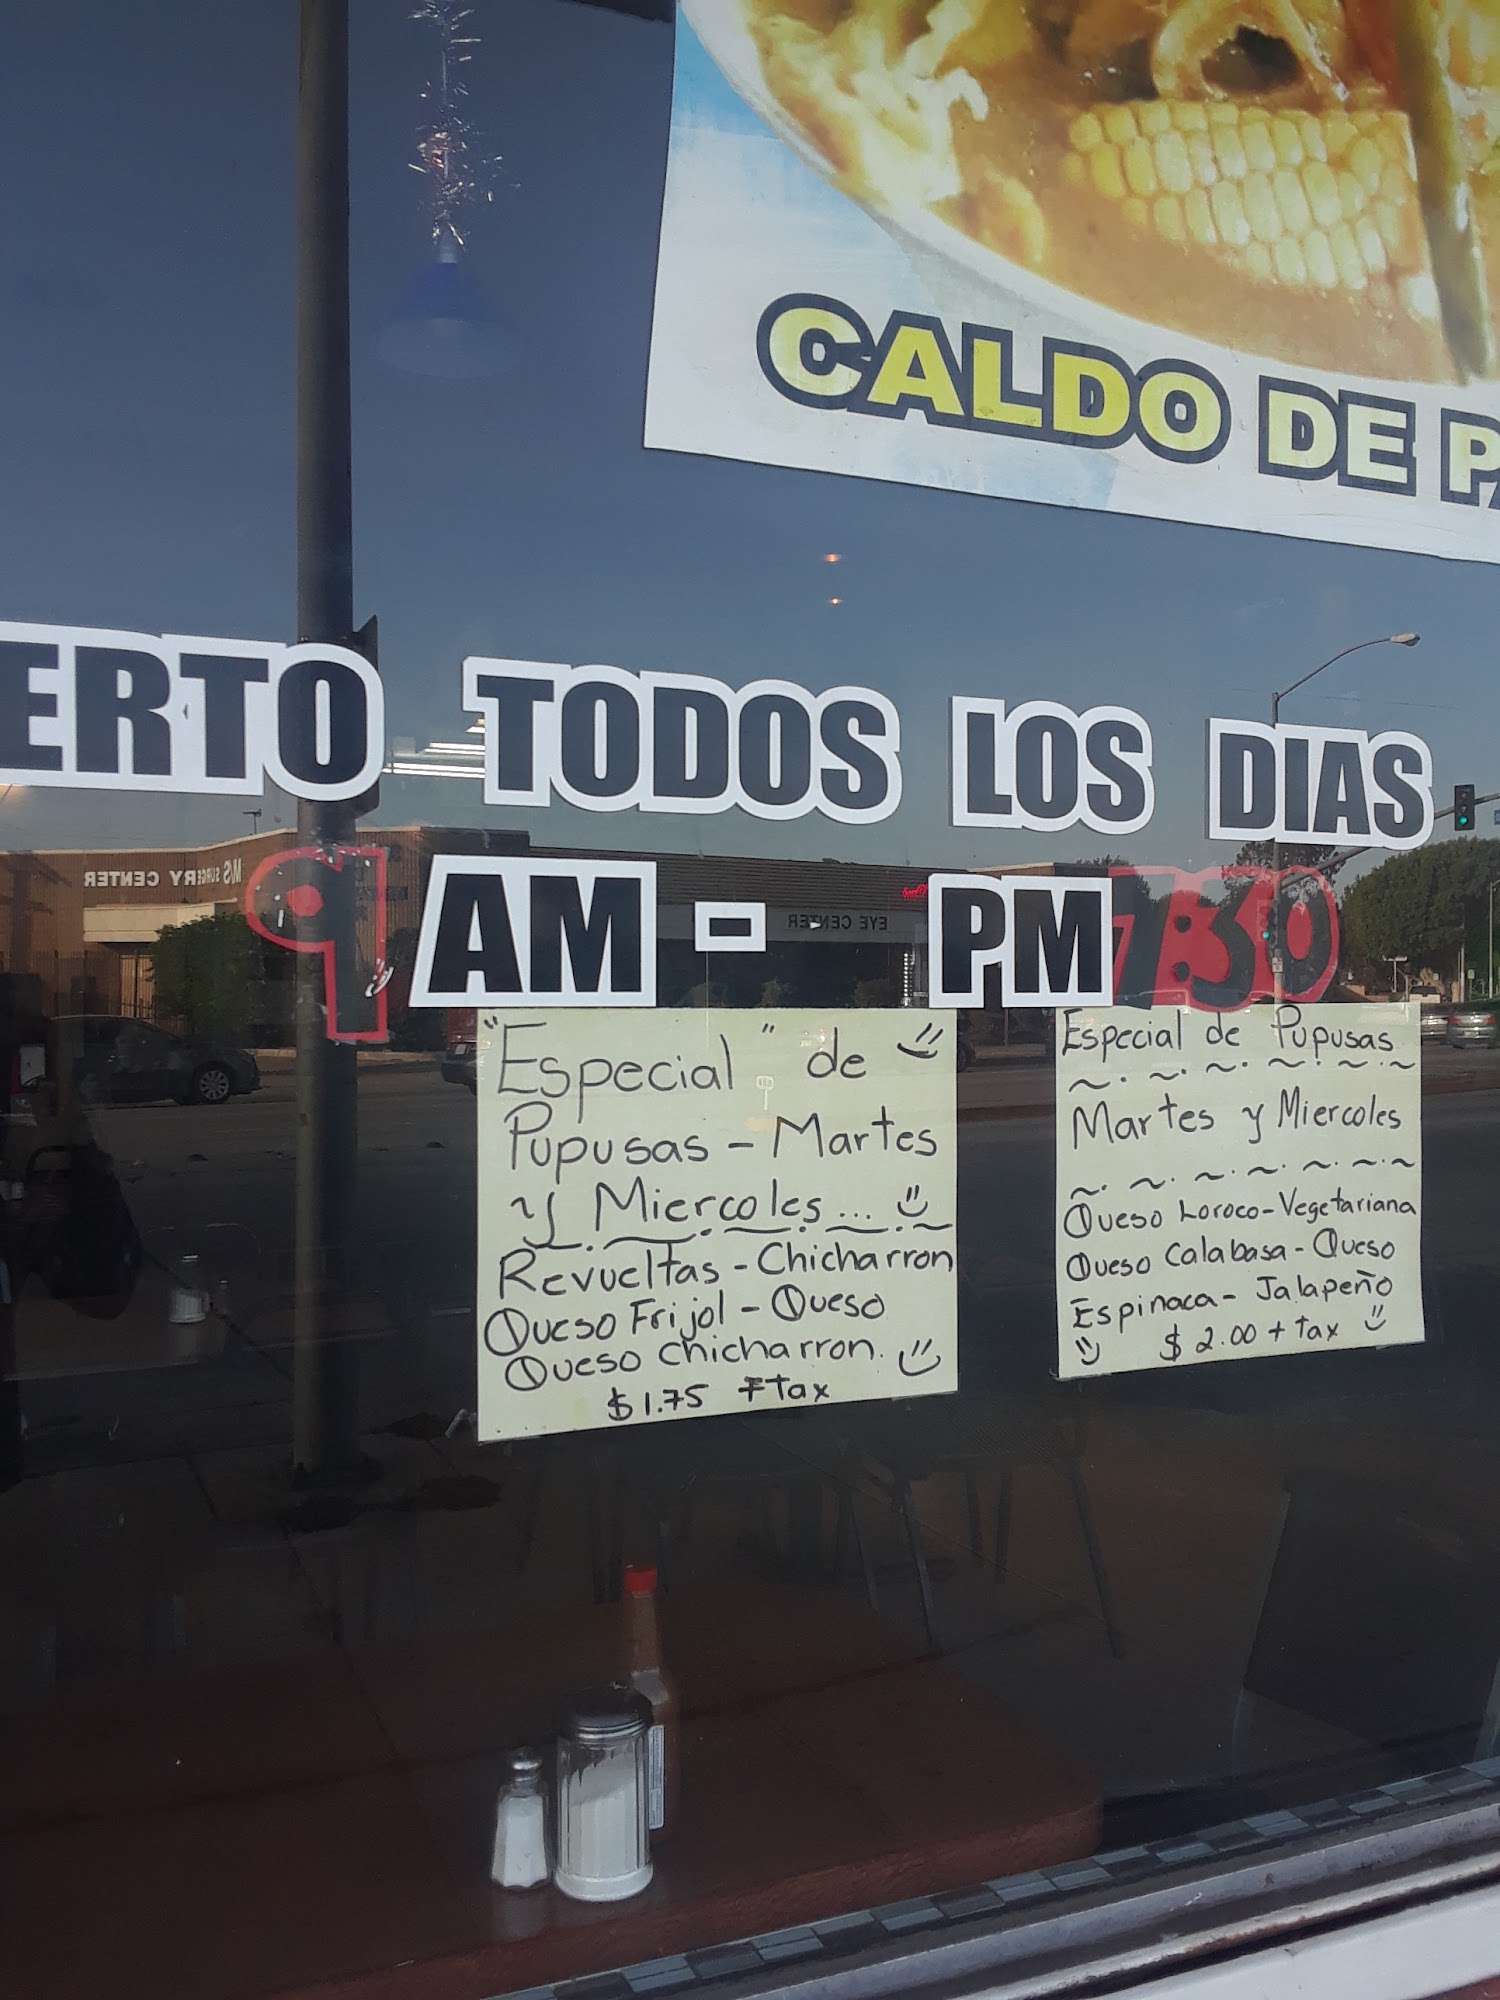 CALDO DE PA
ERTO TODOS LOS DIAS
9 AM - PM 7:30
M/S SURGERY CENTER
EYE CENTER
"Especial" de
Pupusas - Martes
y Miercoles...
Revueltas - Chicharron
Queso Frijol - Queso
Queso chicharron.
$1.75 + tax
Especial de Pupusas
Martes y Miercoles
Queso Loroco - Vegetariana
Queso Calabasa - Queso
Espinaca - Jalapeño
$2.00 + tax